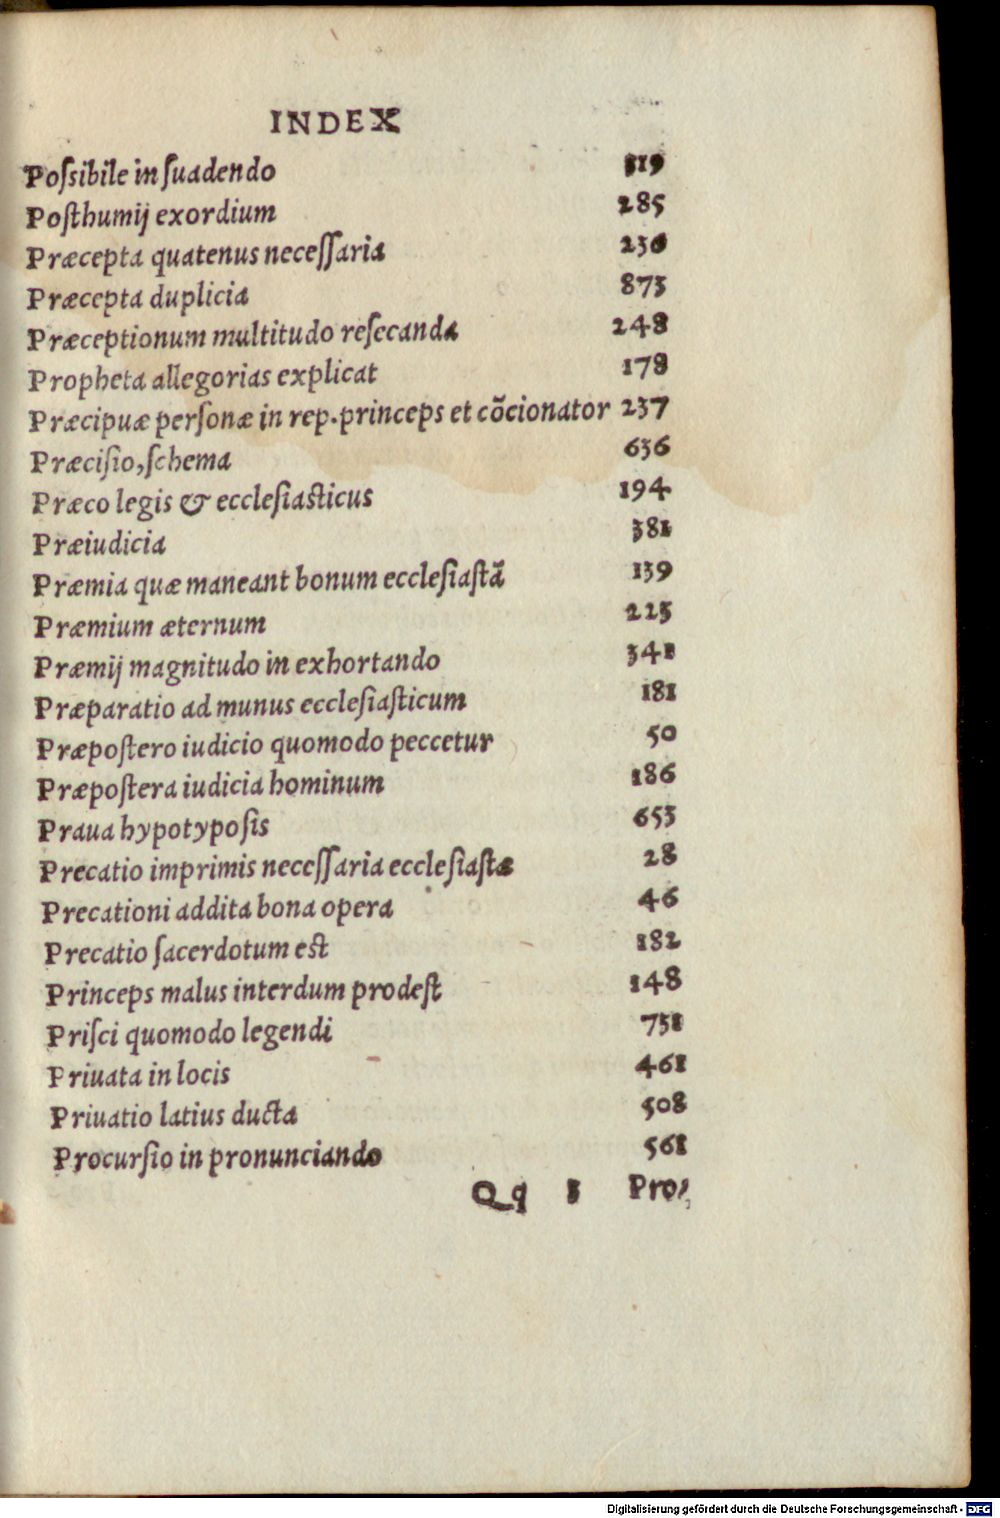 INDEX
Poſsibile in ſuadendo 319
Poſthumij exordium 285
Præcepta quatenus neceſſaria 236
Præcepta duplicia 873
Præceptionum multitudo reſecanda 248
Propheta allegorias explicat 178
Præcipuæ perſonæ in rep.princeps et cõcionator 237
Præciſio,ſchema 636
Præco legis & eccleſiaſticus 194
Præiudicia 381
Præmia quæ maneant bonum eccleſiaſtã 139
Præmium æternum 225
Præmij magnitudo in exhortando 341
Præparatio ad munus eccleſiaſticum 181
Præpoſtero iudicio quomodo peccetur 50
Præpoſtera iudicia hominum 186
Praua hypotypoſis 653
Precatio imprimis neceſſaria eccleſiaſtæ 28
Precationi addita bona opera 46
Precatio ſacerdotum eſt 182
Princeps malus interdum prodeſt 148
Priſci quomodo legendi 731
Priuata in locis 461
Priuatio latius ducta 508
Procurſio in pronunciando 561
Qq 3 Pro⸗
Digitalisierung gefördert durch die Deutsche Forschungsgemeinschaft - DFG